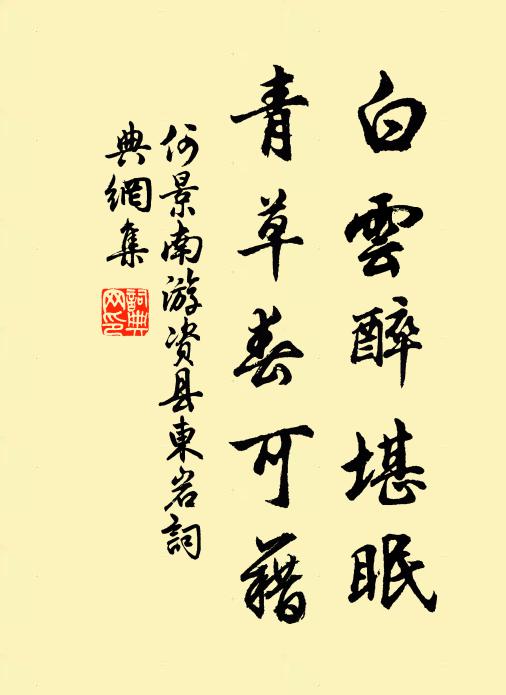 白雲醉堪眠
青草春可藉
何景南游资县東岩詞
典網集
詞典
网印